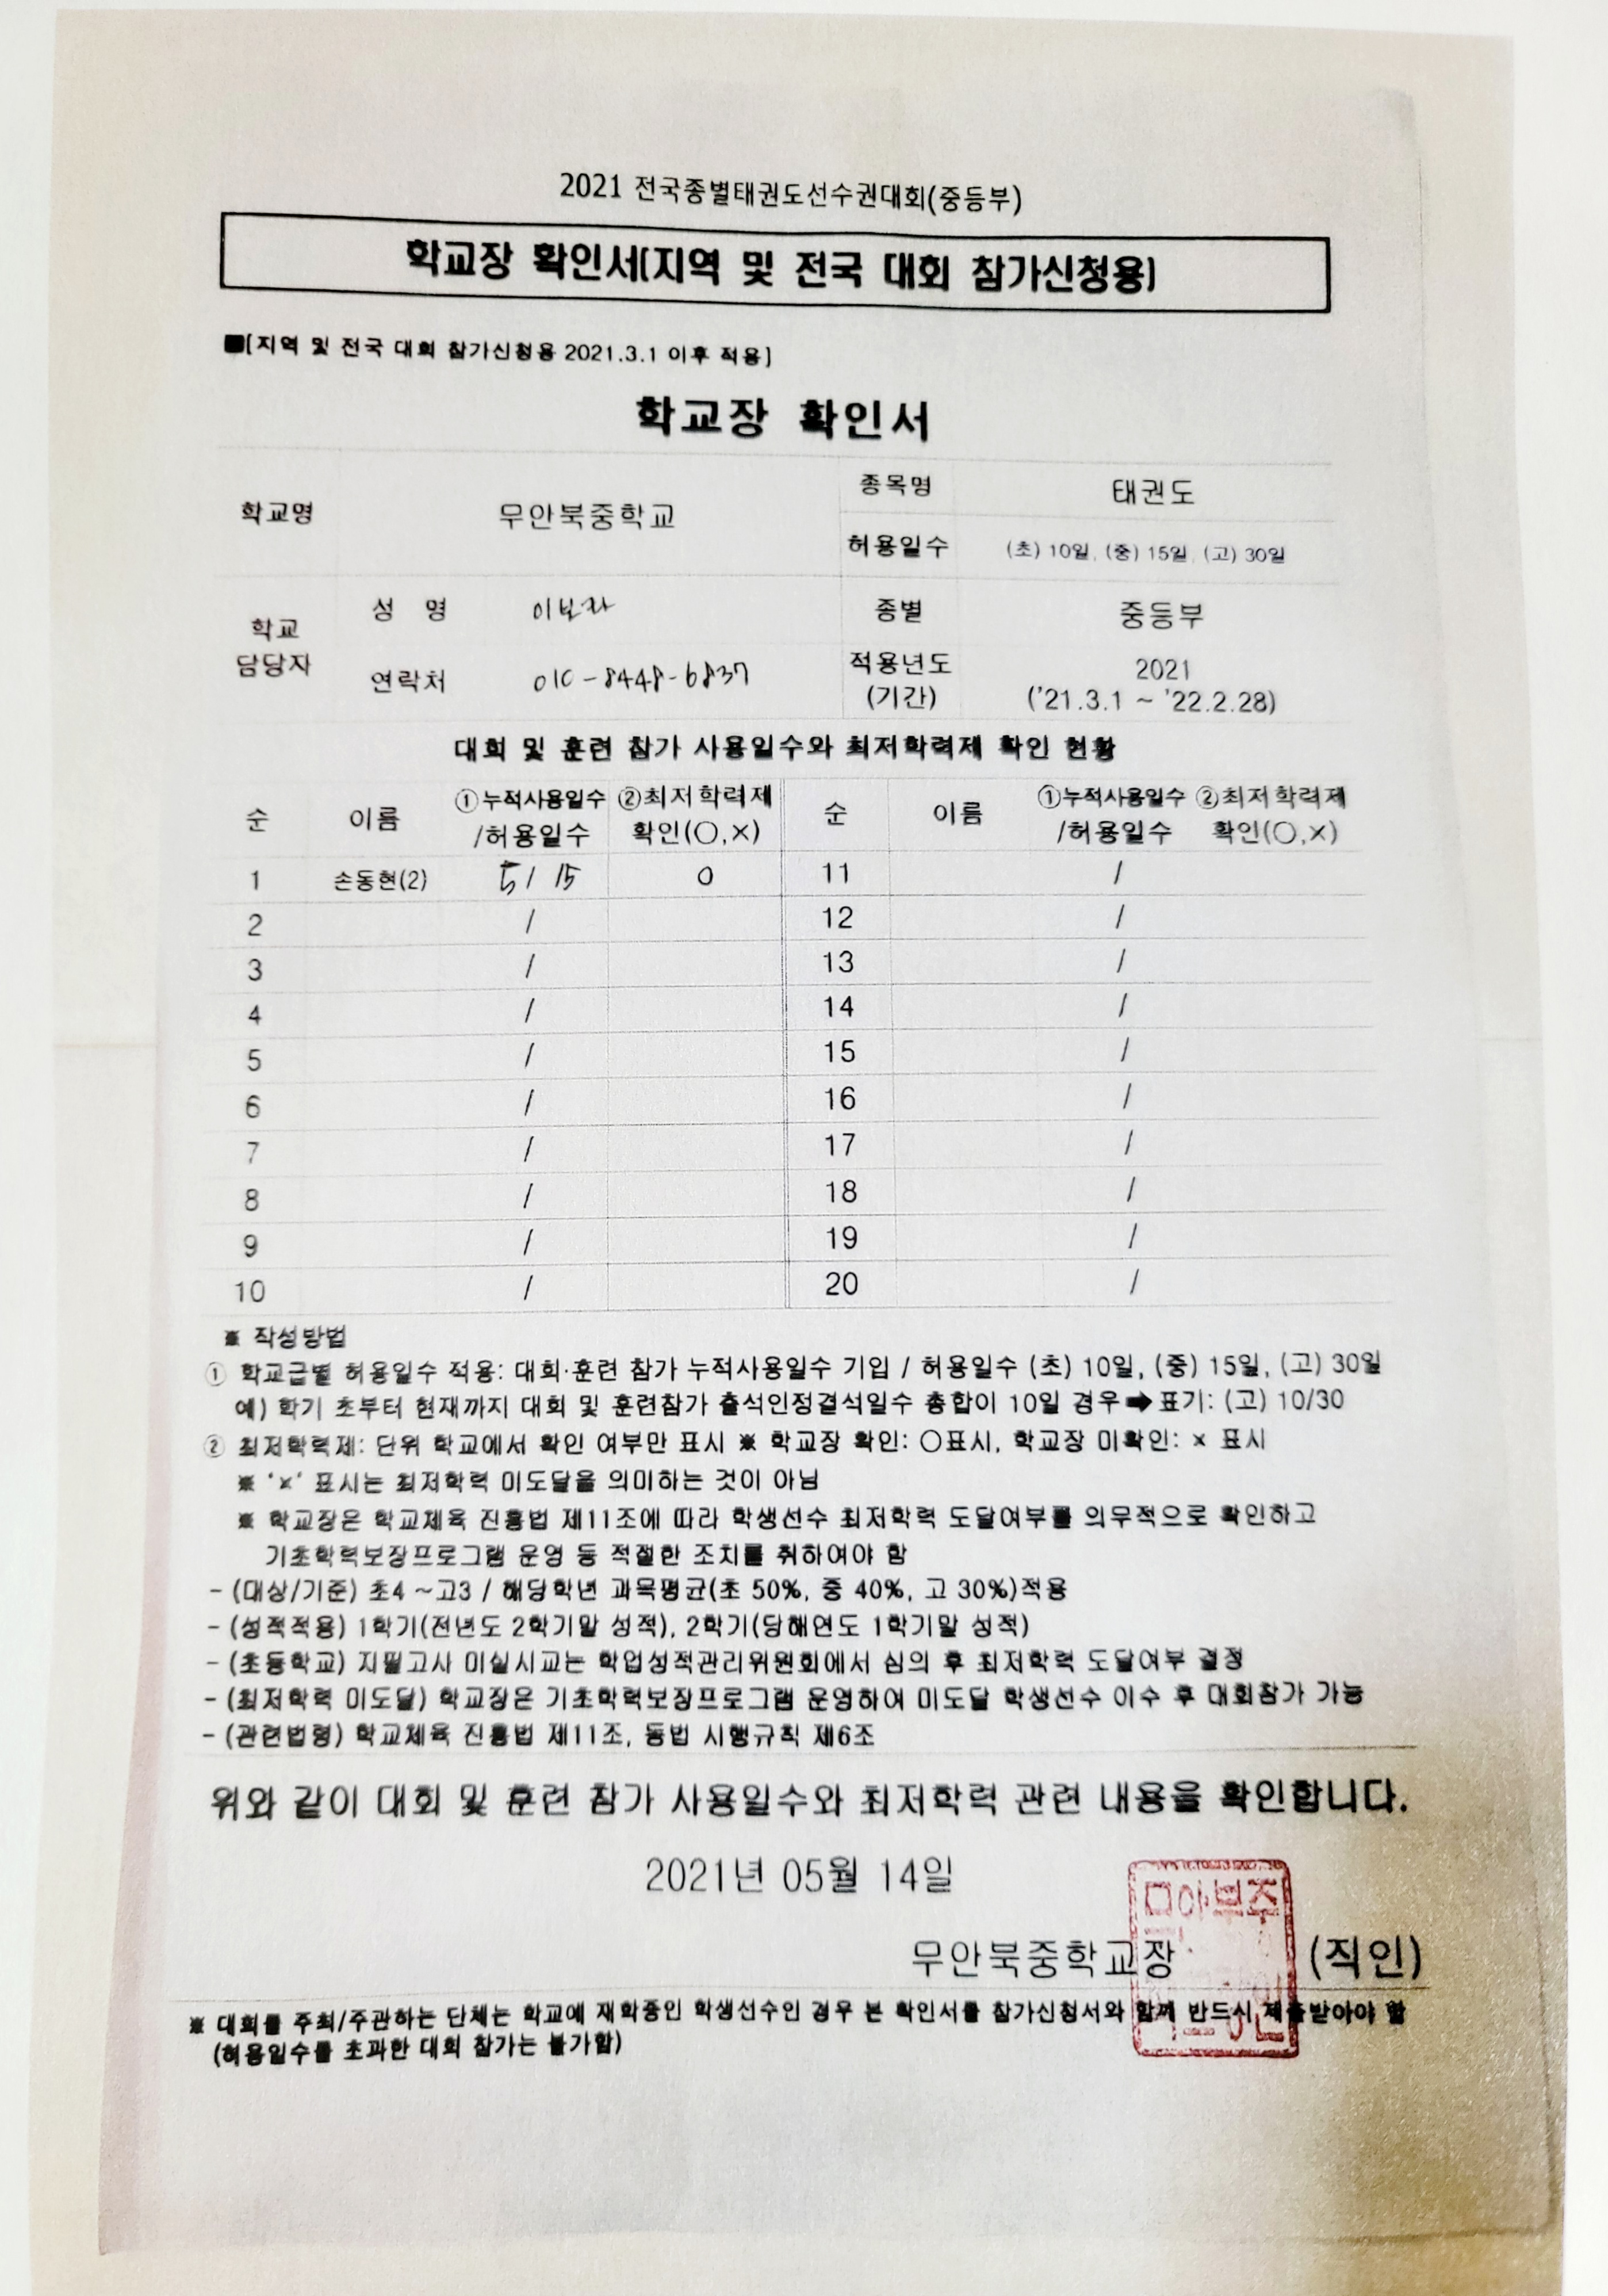 2021 전국종별태권도선수권대회(중등부)
학교장 확인서(지역 및 전국 대회 참가신청용)
■[지역 및 전국 대회 참가신청용 2021.3.1 이후 적용]
학교장 확인서
학교명 무안북중학교 종목명 태권도
허용일수 (초) 10일, (중) 15일, (고) 30일
학교 담당자 성 명 종별 중등부
연락처 010-8448-6837 적용년도 (기간) 2021 ('21.3.1 ~ '22.2.28)
대회 및 훈련 참가 사용일수와 최저학력제 확인 현황
순 이름 ①누적사용일수 /허용일수 ②최저학력제 확인(○,×) 순 이름 ①누적사용일수 /허용일수 ②최저학력제 확인(○,×)
1 손동현(2) 5/ 15 ○ 11 /
2 / 12 /
3 / 13 /
4 / 14 /
5 / 15 /
6 / 16 /
7 / 17 /
8 / 18 /
9 / 19 /
10 / 20 /
※ 작성방법
① 학교급별 허용일수 적용: 대회·훈련 참가 누적사용일수 기입 / 허용일수 (초) 10일, (중) 15일, (고) 30일
예) 학기 초부터 현재까지 대회 및 훈련참가 출석인정결석일수 총합이 10일 경우➡표기: (고) 10/30
② 최저학력제: 단위 학교에서 확인 여부만 표시 ※ 학교장 확인: ○표시, 학교장 미확인: × 표시
※ '×' 표시는 최저학력 미도달을 의미하는 것이 아님
※ 학교장은 학교체육 진흥법 제11조에 따라 학생선수 최저학력 도달여부를 의무적으로 확인하고
기초학력보장프로그램 운영 등 적절한 조치를 취하여야 함
- (대상/기준) 초4 ~고3 / 해당학년 과목평균(초 50%, 중 40%, 고 30%)적용
- (성적적용) 1학기(전년도 2학기말 성적), 2학기(당해연도 1학기말 성적)
- (초등학교) 지필고사 미실시교는 학업성적관리위원회에서 심의 후 최저학력 도달여부 결정
- (최저학력 미도달) 학교장은 기초학력보장프로그램 운영하여 미도달 학생선수 이수 후 대회참가 가능
- (관련법령) 학교체육 진흥법 제11조, 동법 시행규칙 제6조
위와 같이 대회 및 훈련 참가 사용일수와 최저학력 관련 내용을 확인합니다.
2021년 05월 14일
무안북중학교장 (직인)
※ 대회를 주최/주관하는 단체는 학교에 재학중인 학생선수인 경우 본 확인서를 참가신청서와 함께 반드시 제출받아야 함
(허용일수를 초과한 대회 참가는 불가함)